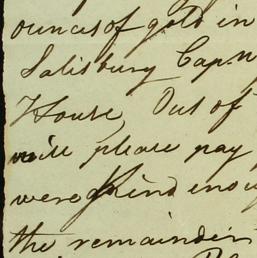 ounces of gold in
Salisbury Cap.n
House, Out of
will please pay
were kind enou
the remainder